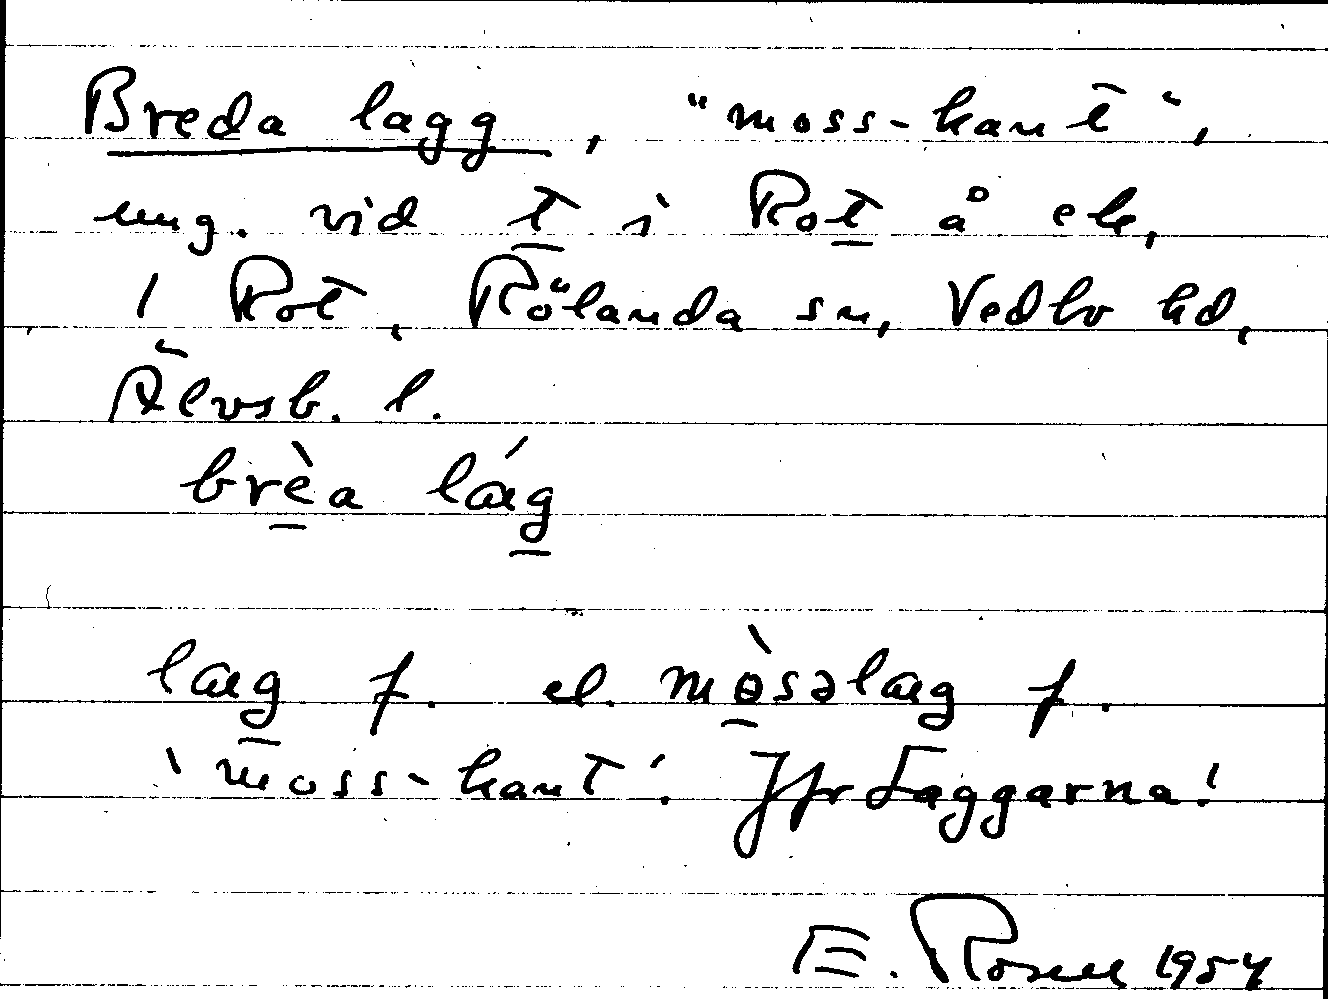 Breda lagg, "moss-kant",
ung. vid t i Rot å ek,
1 Rot, Rölanda sn, Vedbo hd,
Älvsb. l.
brèa lág
læg f. el. mòsəlæg f.
'moss-kant'. Jfr Laggarna!
E. Rosell 1954